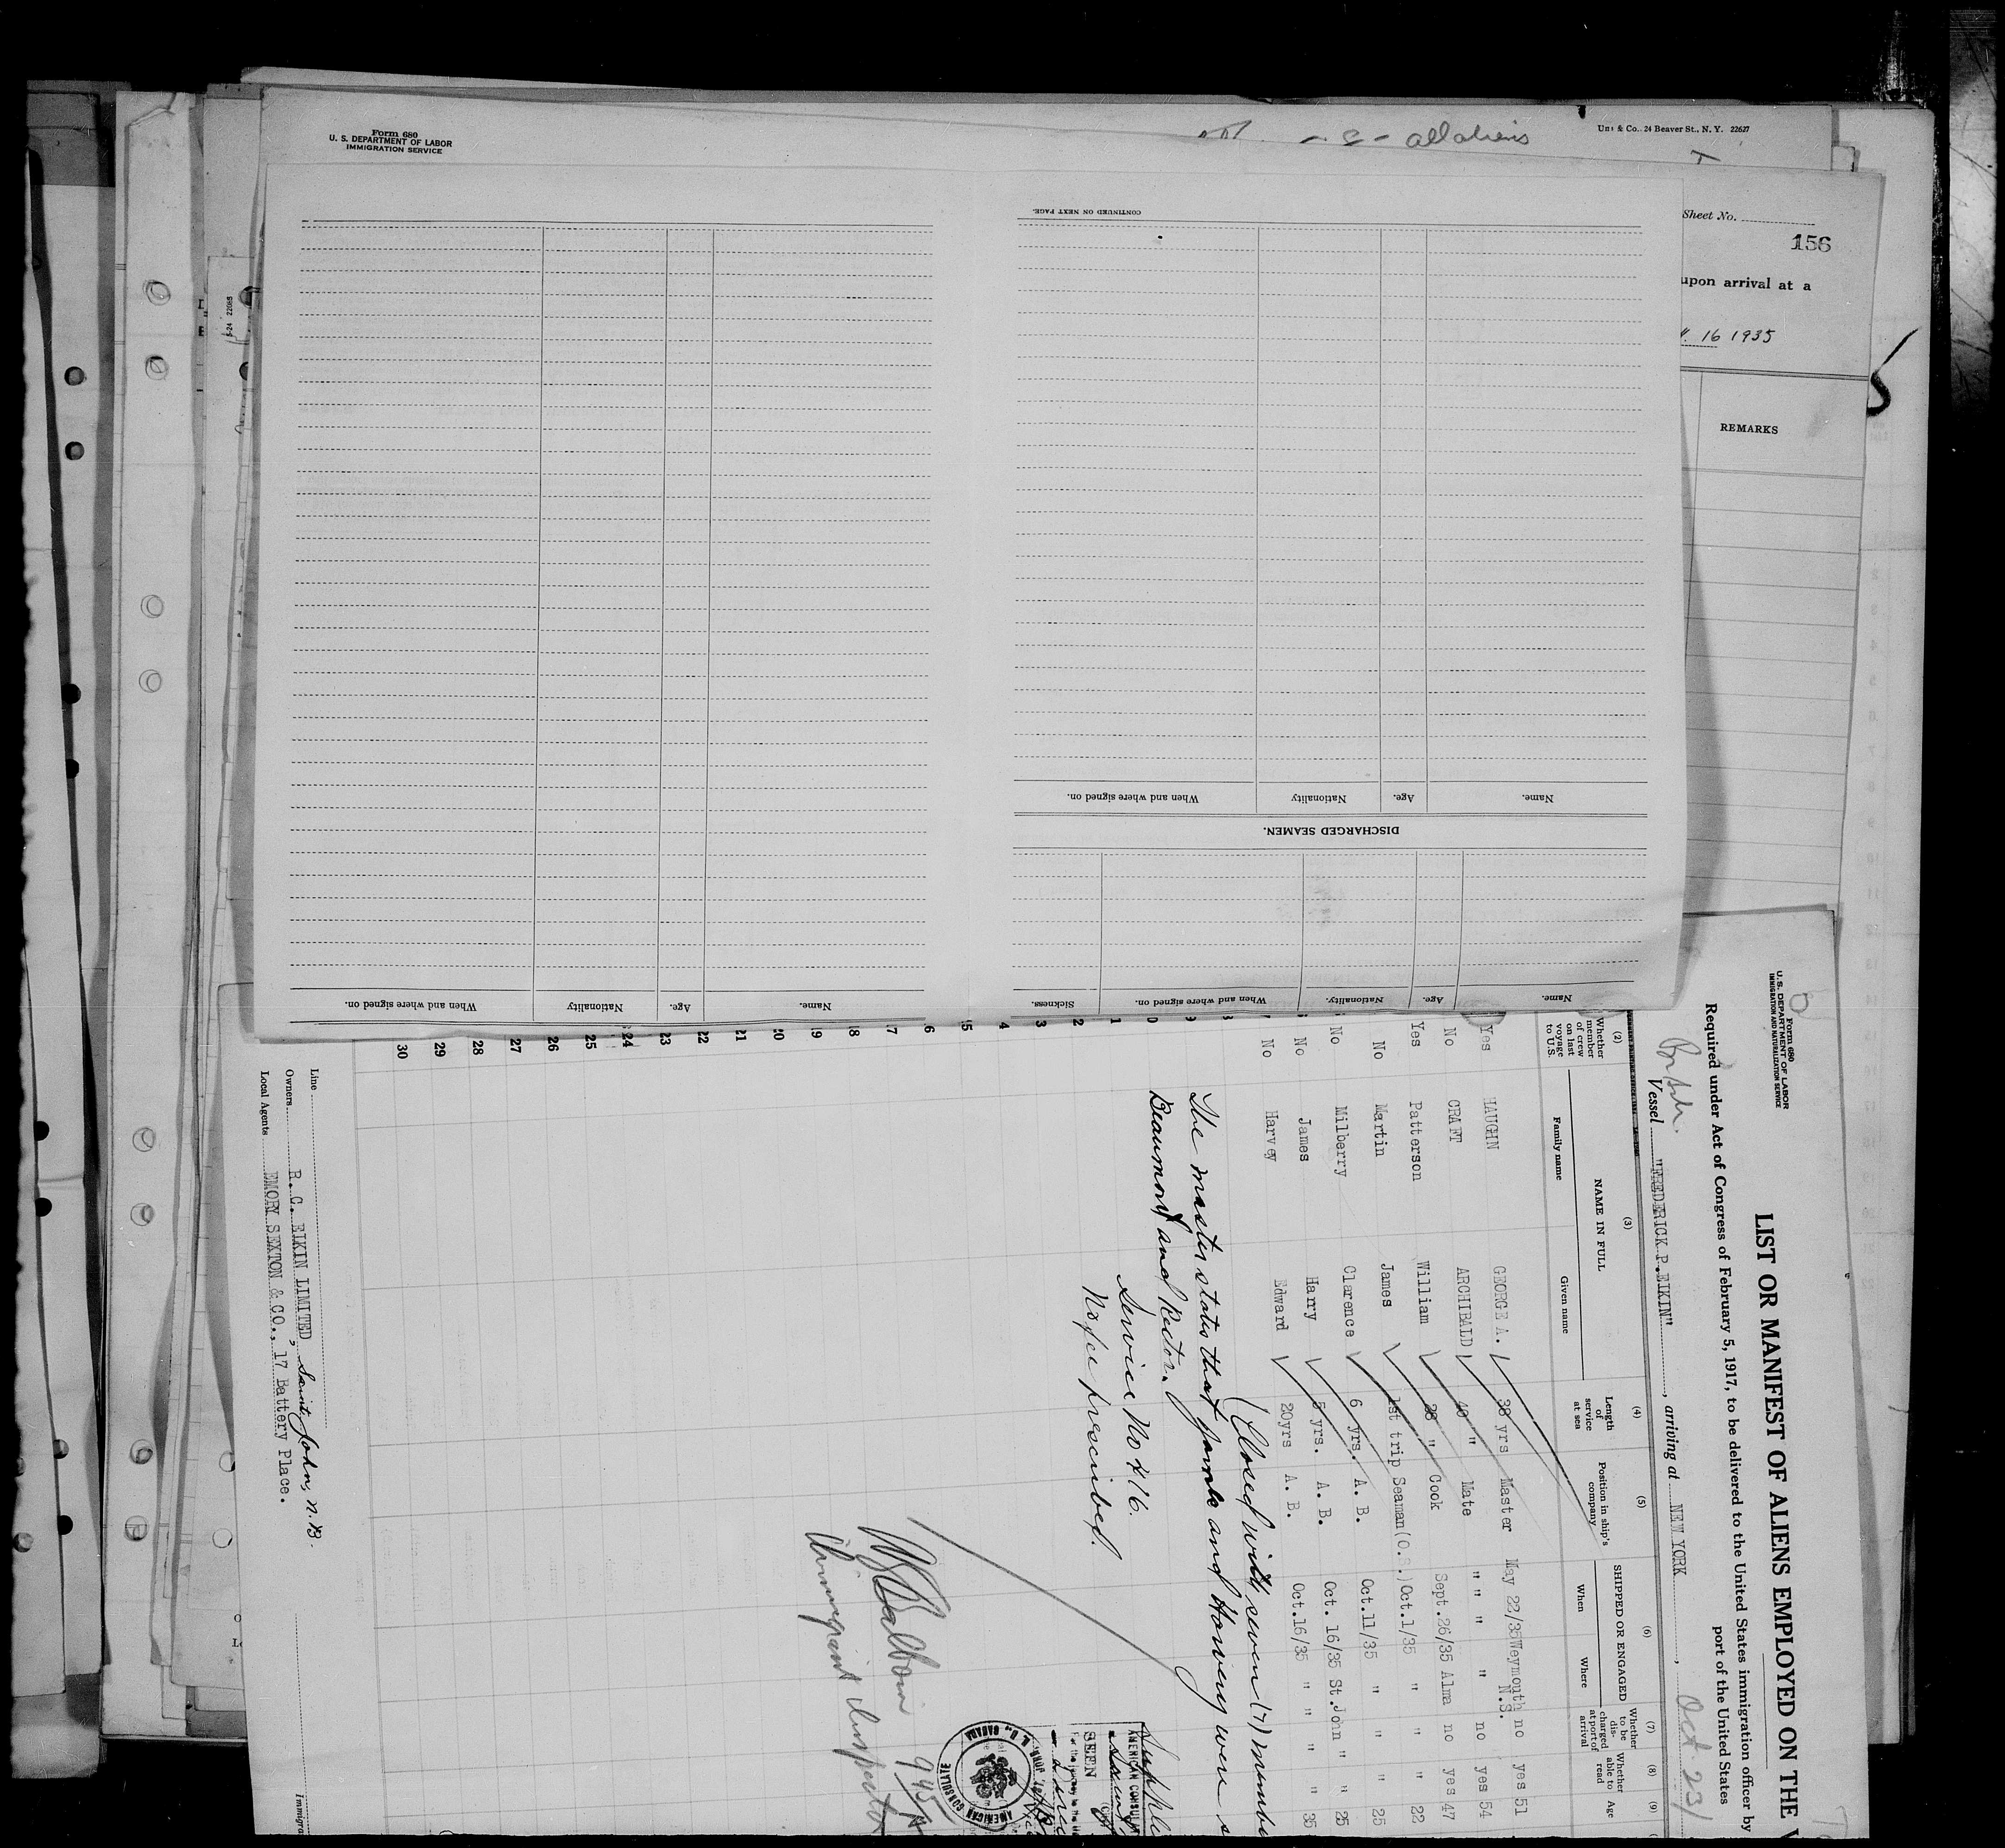 Form 680
U. S. DEPARTMENT OF LABOR
IMMIGRATION SERVICE
all aliens
& Co., 24 Beaver St., N. Y. 22627
Sheet No.
156
upon arrival at a
16 1935
REMARKS
5-24 22085
CONTINUED ON NEXT PAGE.
Name.
Age.
Nationality
When and where signed on.
DISCHARGED SEAMEN.
Name.
Age.
Nationality.
When and where signed on.
Sickness.
Name.
Age.
Nationality
When and where signed on.
Form 680
U.S. DEPARTMENT OF LABOR
IMMIGRATION AND NATURALIZATION SERVICE
LIST OR MANIFEST OF ALIENS EMPLOYED ON THE
Required under Act of Congress of February 5, 1917, to be delivered to the United States immigration officer by
port of the United States
Vessel "FREDERICK P. ELKIN", arriving at NEW YORK, Oct 23/
(2) (3) (4) (5) (6) (7) (8) (9)
Whether member of crew on last voyage to U.S.
NAME IN FULL
Family name
Given name
Length of service at sea
Position in ship's company
SHIPPED OR ENGAGED
When
Where
Whether to be discharged at port of arrival
Whether able to read
Age
Yes HAUGHN GEORGE A. 38 yrs Master May 22/35 Weymouth N.S. no yes 51
No CRAFT ARCHIBALD 40 " Mate " " " " no yes 54
Yes Patterson William 28 " Cook Sept.26/35 Alma no yes 47
No Martin James 1st trip Seaman (O.S.) Oct.1/35 " " " 22
No Milberry Clarence 6 yrs. A. B. Oct.11/35 " " " 25
No James Harry 5 yrs. A. B. Oct. 16/35 St.John " " 25
No Harvey Edward 20yrs A. B. Oct.16/35 " " " " 35
(Closed with seven (7)
The master states that and Harvey were
Beaumont and Rector.
Service No 216.
No fee prescribed.
Immigrant Inspector
AMERICAN CONSULATE
SEEN
AMERICAN CONSULATE
CANADA
16
17
18
19
20
21
22
23
24
25
26
27
28
29
30
Line
Owners R. C. ELKIN LIMITED, Saint John, N.B.
Local Agents EMORY SEXTON & CO., 17 Battery Place.
Immigra